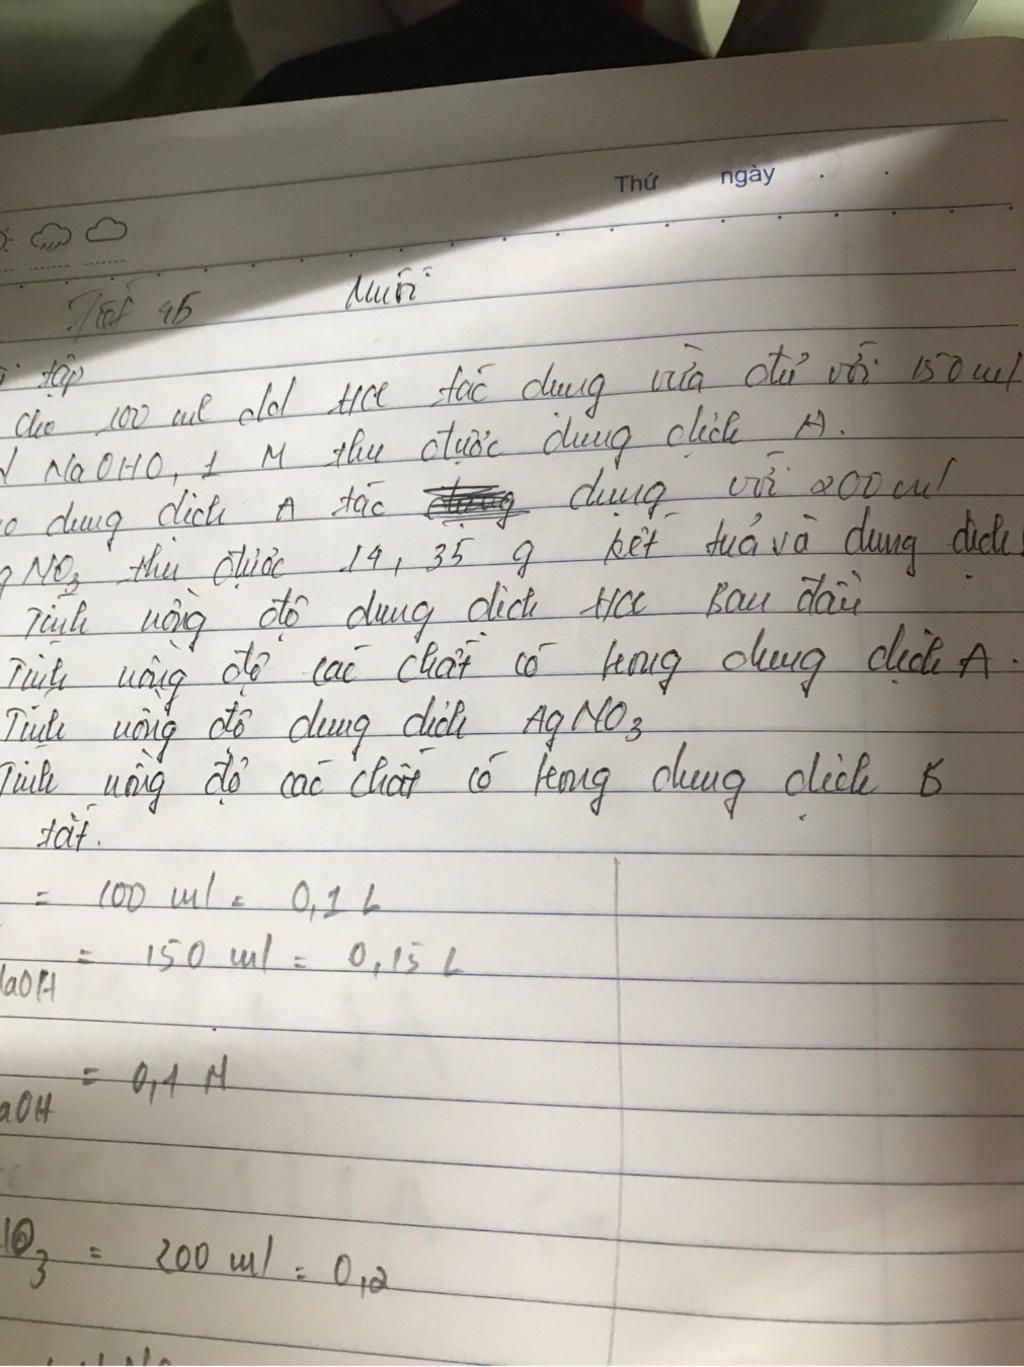 Thứ ngày
Tiết 45 Muối
tập
cho 100 ml dd HCl tác dụng vừa đủ với 150 ml
NaOH 0,1 M thu được dung dịch A.
dung dịch A tác dụng với 200 ml
NO3 thu được 14,35 g kết tủa và dung dịch
Tính nồng độ dung dịch HCl Ban đầu
Tính nồng độ các chất có trong dung dịch A.
Tính nồng độ dung dịch AgNO3
Tính nồng độ các chất có trong dung dịch B
tắt.
= 100 ml = 0,1 L
= 150 ml = 0,15 L
NaOH
= 0,1 M
aOH
NO3 = 200 ml = 0,2